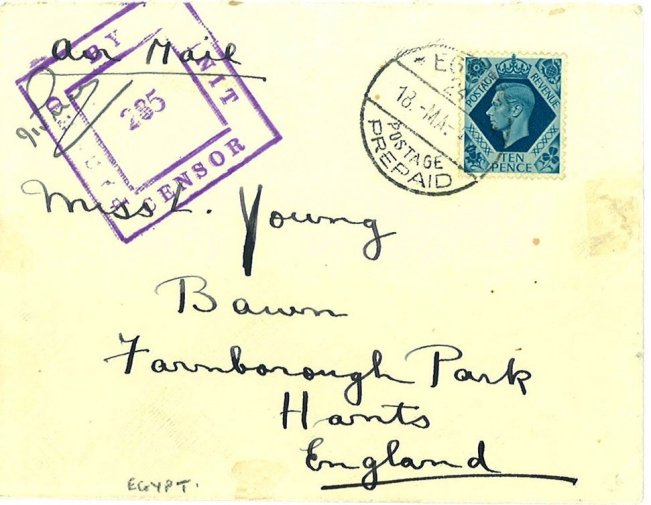 Air Mail
BY UNIT
285
CENSOR
EG
18.-MA.
POSTAGE
PREPAID
POSTAGE
REVENUE
TEN
PENCE
Miss L. Young
Bawn
Farnborough Park
Hants
England
EGYPT.